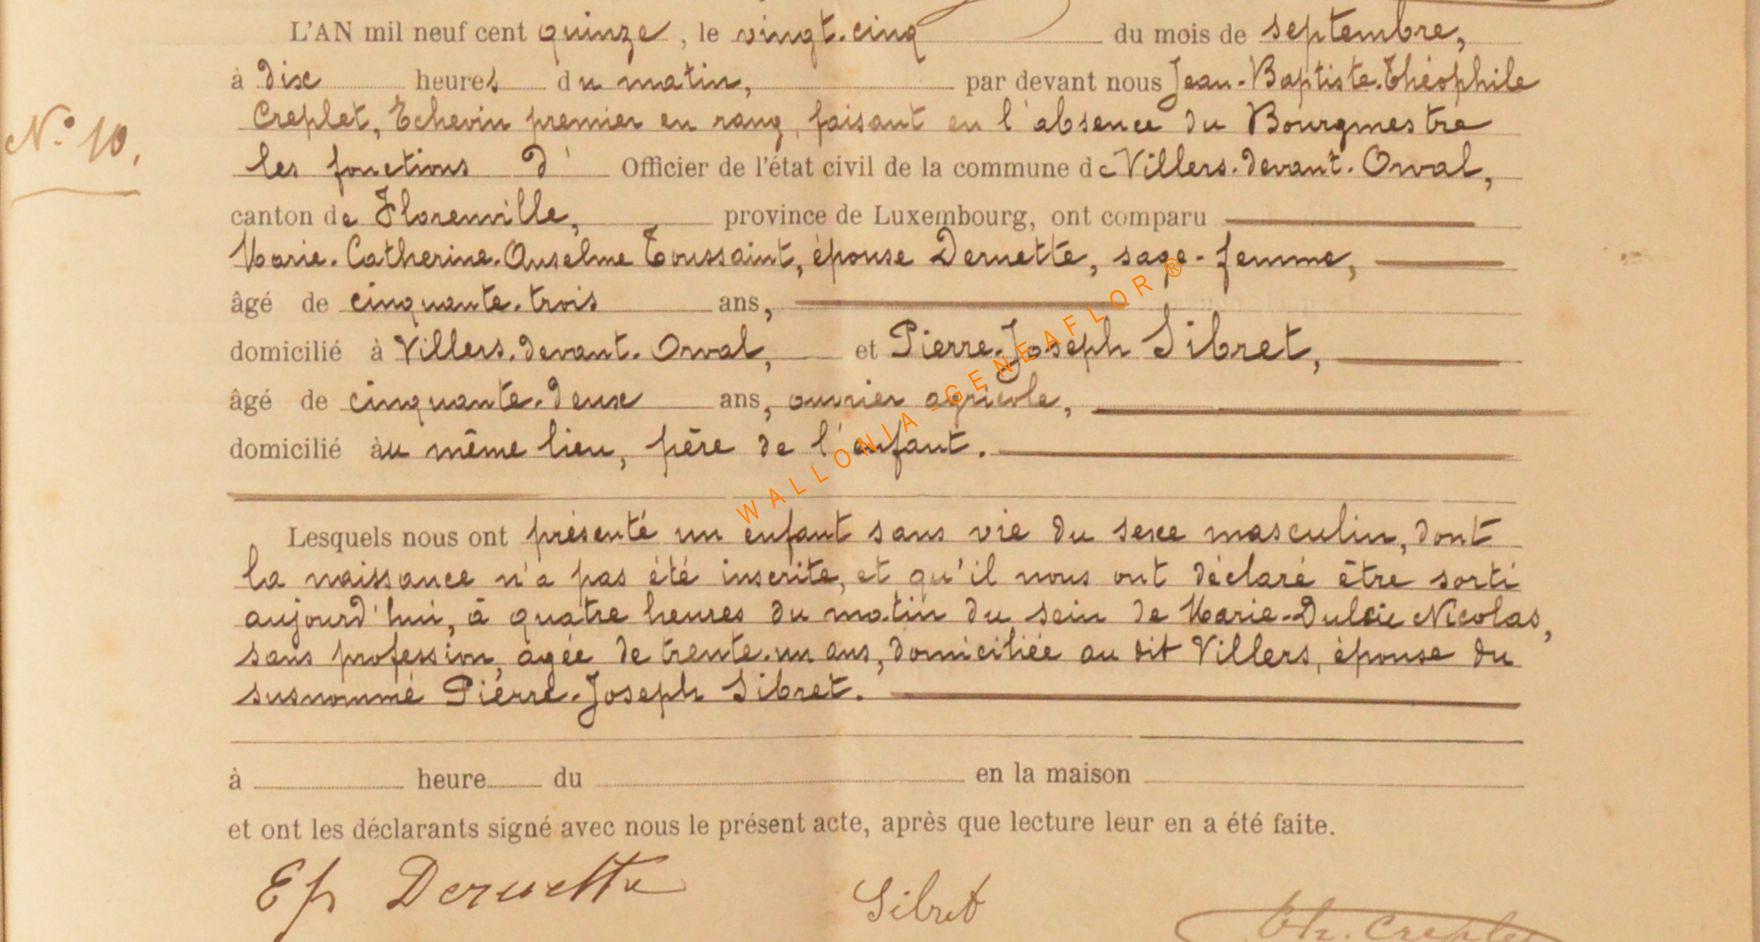 L'AN mil neuf cent quinze, le vingt-cinq du mois de septembre,
à dix heures du matin, par devant nous Jean-Baptiste-Théophile
Creplet, Echevin premier en rang, faisant en l'absence du Bourgmestre
N.° 10.
les fonctions d' Officier de l'état civil de la commune de Villers-devant-Orval,
canton de Florenville, province de Luxembourg, ont comparu
Marie-Catherine-Anselme Toussaint, épouse Dernette, sage-femme,
âgé de cinquante-trois ans,
domicilié à Villers-devant-Orval, et Pierre-Joseph Sibret,
âgé de cinquante-deux ans, ouvrier agricole,
domicilié au même lieu, père de l'enfant.
WALLONIA - GENEAFLOR ®
Lesquels nous ont présenté un enfant sans vie du sexe masculin, dont
la naissance n'a pas été inscrite, et qu'il nous ont déclaré être sorti
aujourd'hui, à quatre heures du matin du sein de Marie-Dulcie Nicolas,
sans profession, agée de trente-un ans, domiciliée au dit Villers, épouse du
susnommé Pierre-Joseph Sibret.
à heure du en la maison
et ont les déclarants signé avec nous le présent acte, après que lecture leur en a été faite.
Ep Dernette Sibret Th. Creplet